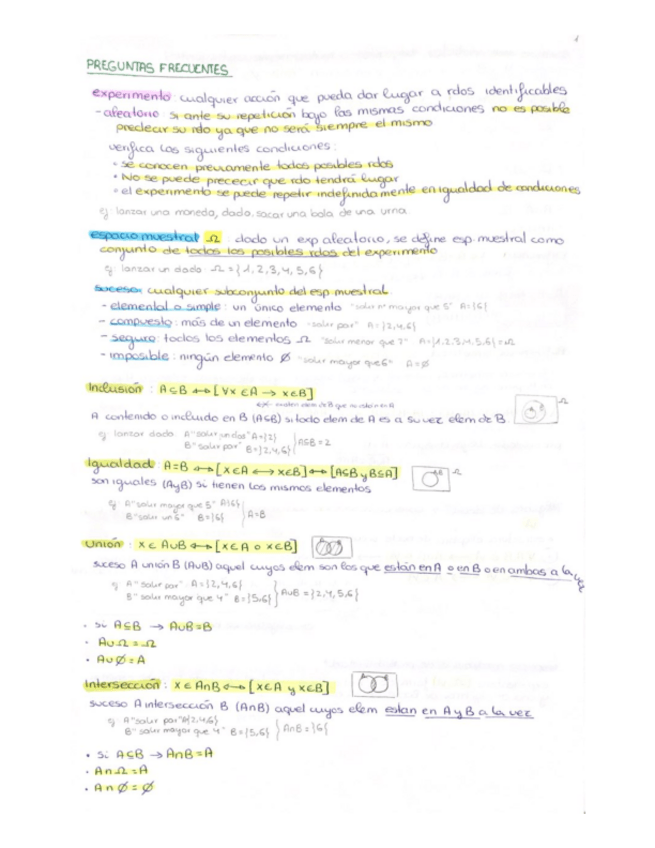 1
PREGUNTAS FRECUENTES
experimento cualquier acción que pueda dar lugar a rdos identificables
- aleatorio: si ante su repetición bajo las mismas condiciones no es posible
predecir su rdo ya que no será siempre el mismo
verifica las siguientes condiciones:
• se conocen previamente todos posibles rdos
• No se puede prececir que rdo tendrá lugar
• el experimento se puede repetir indefinidamente en igualdad de condiciones
ej lanzar una moneda, dado, sacar una bola de una urna
espacio muestral Ω : dado un exp aleatorio, se define esp. muestral como
conjunto de todos los posibles rdos del experimento
ej lanzar un dado: Ω = {1, 2, 3, 4, 5, 6}
suceso: cualquier subconjunto del esp muestral
- elemental o simple: un único elemento "salir nº mayor que 5" A={6}
- compuesto: más de un elemento "salir par" A={2,4,6}
- seguro: todos los elementos Ω "salir menor que 7" A={1,2,3,4,5,6}=Ω
- imposible: ningún elemento ∅ "salir mayor que 6" A=∅
Inclusión: A⊆B ↔ [∀x∈A → x∈B]
A contenido o incluido en B (A⊆B) si todo elem de A es a su vez elem de B
ej lanzar dado: A "salir un dos" A={2}
B "salir par" B={2,4,6} } A⊆B = 2
Igualdad: A=B ↔ [x∈A ↔ x∈B] ↔ [A⊆B y B⊆A]
son iguales (AyB) si tienen los mismos elementos
ej A "salir mayor que 5" A{6}
B "salir un 6" B={6} } A=B
Unión: x∈A∪B ↔ [x∈A o x∈B]
suceso A unión B (A∪B) aquel cuyos elem son los que están en A o en B o en ambos a la vez
ej A "salir par": A={2,4,6}
B "salir mayor que 4" B={5,6} } A∪B={2,4,5,6}
• si A⊆B → A∪B=B
• A∪Ω=Ω
• A∪∅=A
Intersección: x∈A∩B ↔ [x∈A y x∈B]
suceso A intersección B (A∩B) aquel cuyos elem estan en A y B a la vez
ej A "salir par" A{2,4,6}
B "salir mayor que 4" B={5,6} } A∩B={6}
• Si A⊆B → A∩B=A
• A∩Ω=A
• A∩∅=∅